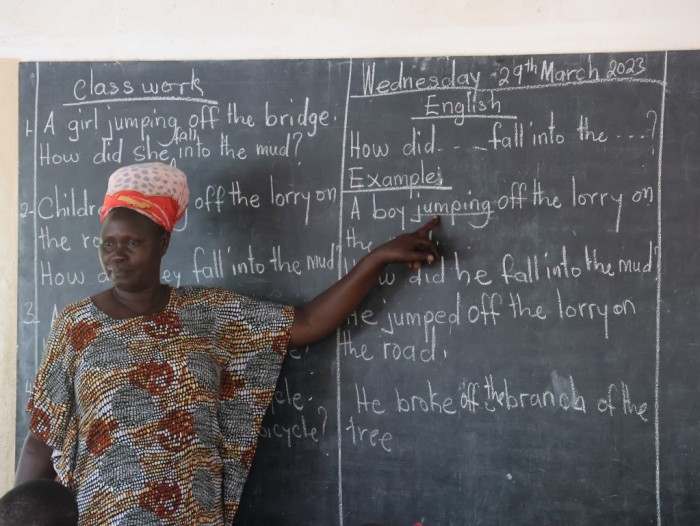 Class work
1. A girl jumping off the bridge.
How did she fall into the mud?
2. off the lorry on
the
How fall into the mud
3. A
bicycle?
Wednesday 29th March 2023
English
How did ---- fall into the ----?
Example;
A boy jumping off the lorry on
the
did he fall into the mud
He jumped off the lorry on
the road.
He broke off the branch of the
tree